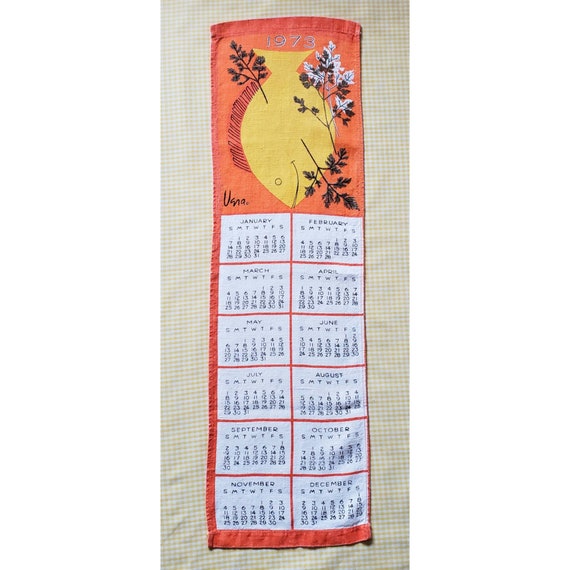 1973
Vera
JANUARY
S M T W T F S
1 2 3 4 5 6
7 8 9 10 11 12 13
14 15 16 17 18 19 20
21 22 23 24 25 26 27
28 29 30 31
FEBRUARY
S M T W T F S
1 2 3
4 5 6 7 8 9 10
11 12 13 14 15 16 17
18 19 20 21 22 23 24
25 26 27 28
MARCH
S M T W T F S
1 2 3
4 5 6 7 8 9 10
11 12 13 14 15 16 17
18 19 20 21 22 23 24
25 26 27 28 29 30 31
APRIL
S M T W T F S
1 2 3 4 5 6 7
8 9 10 11 12 13 14
15 16 17 18 19 20 21
22 23 24 25 26 27 28
29 30
MAY
S M T W T F S
1 2 3 4 5
6 7 8 9 10 11 12
13 14 15 16 17 18 19
20 21 22 23 24 25 26
27 28 29 30 31
JUNE
S M T W T F S
1 2
3 4 5 6 7 8 9
10 11 12 13 14 15 16
17 18 19 20 21 22 23
24 25 26 27 28 29 30
JULY
S M T W T F S
1 2 3 4 5 6 7
8 9 10 11 12 13 14
15 16 17 18 19 20 21
22 23 24 25 26 27 28
29 30 31
AUGUST
S M T W T F S
1 2 3 4
5 6 7 8 9 10 11
12 13 14 15 16 17 18
19 20 21 22 23 24 25
26 27 28 29 30 31
SEPTEMBER
S M T W T F S
1
2 3 4 5 6 7 8
9 10 11 12 13 14 15
16 17 18 19 20 21 22
23 24 25 26 27 28 29
30
OCTOBER
S M T W T F S
1 2 3 4 5 6
7 8 9 10 11 12 13
14 15 16 17 18 19 20
21 22 23 24 25 26 27
28 29 30 31
NOVEMBER
S M T W T F S
1 2 3
4 5 6 7 8 9 10
11 12 13 14 15 16 17
18 19 20 21 22 23 24
25 26 27 28 29 30
DECEMBER
S M T W T F S
1
2 3 4 5 6 7 8
9 10 11 12 13 14 15
16 17 18 19 20 21 22
23 24 25 26 27 28 29
30 31